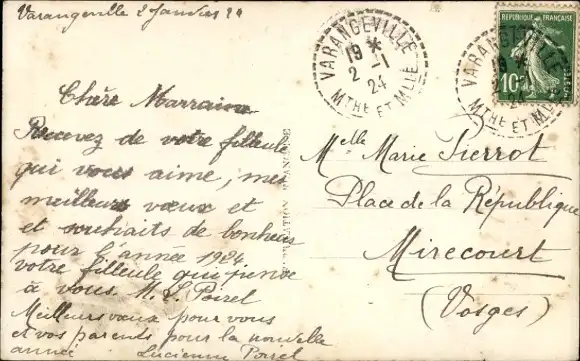 Varangeville 2 Janvier 24
Chère Marraine
Recevez de votre filleule
qui vous aime, mes
meilleurs vœux et
et souhaits de bonheur
pour l'année 1924.
votre filleule qui pense
à vous. M. L. Poirel
Meilleurs vœux pour vous
et vos parents pour la nouvelle
année Lucienne Poirel
VARANGEVILLE
19 *
2 -1
24
MTHE ET MLLE
VARANGEVILLE
19 *
MTHE ET MLLE
REPUBLIQUE FRANÇAISE
10
Melle Marie Pierrot
Place de la République
Mirecourt
(Vosges)